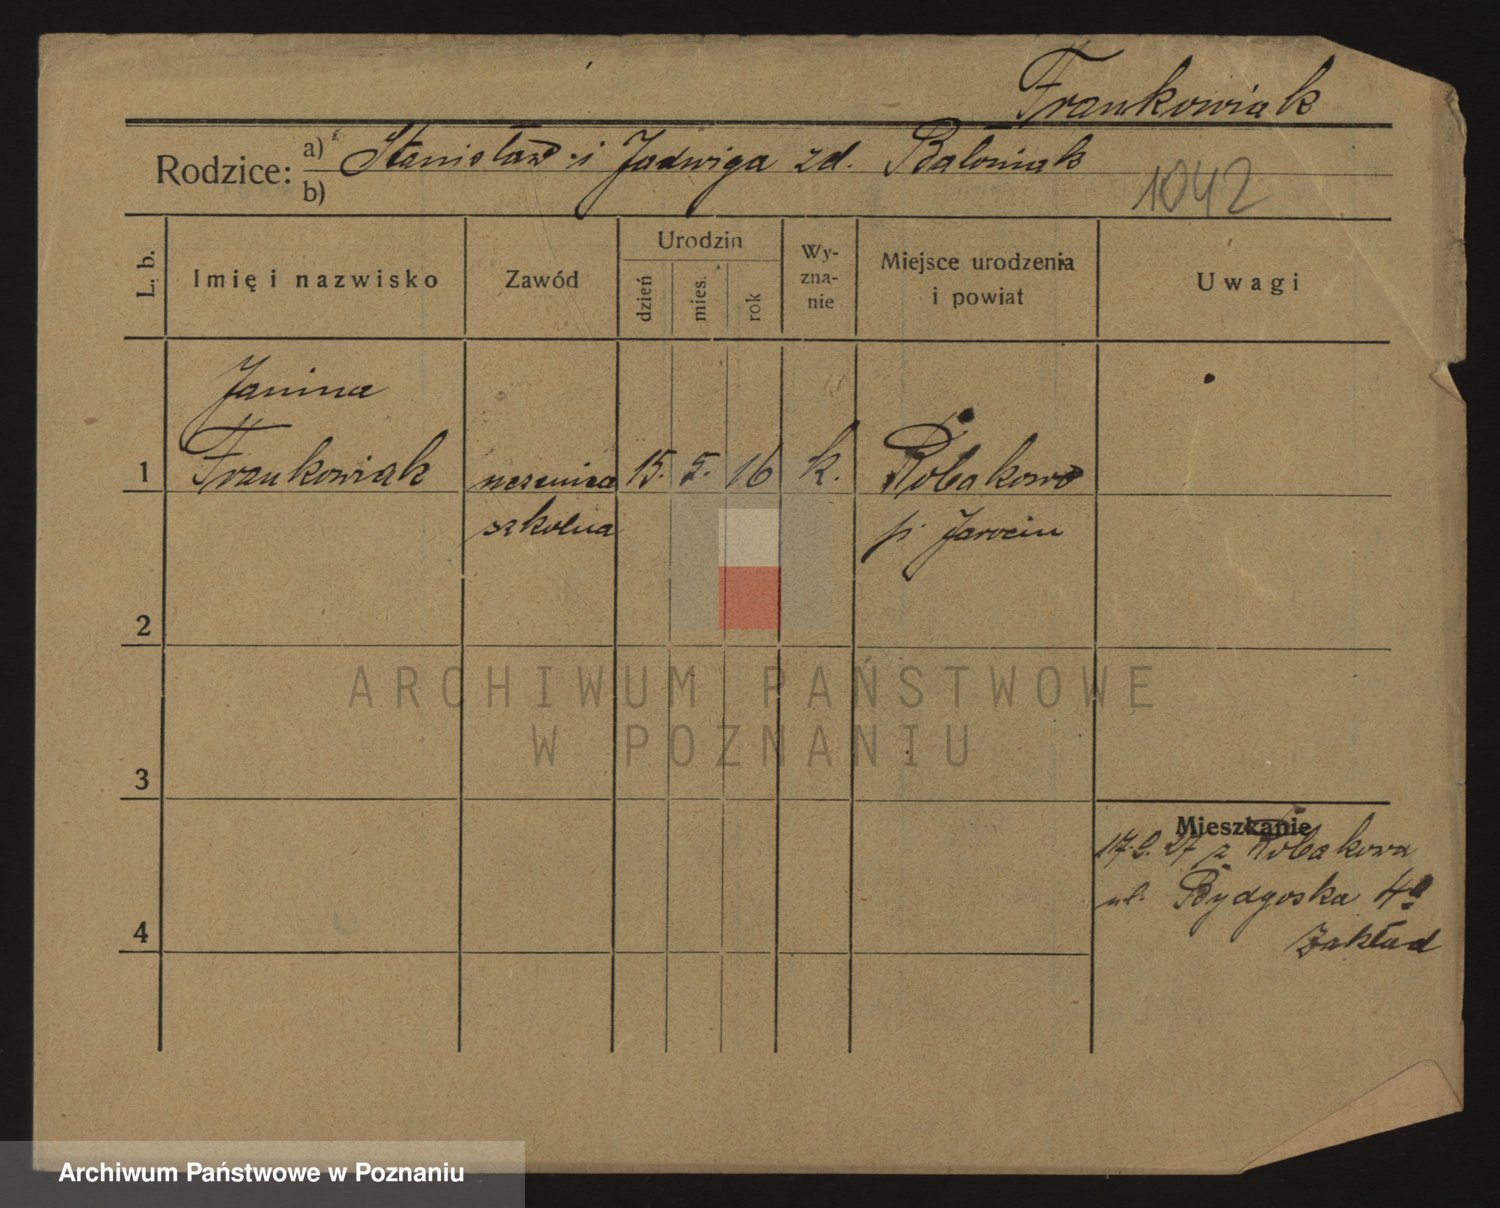 Frankowiak
Rodzice: a) Stanisław i Jadwiga zd. Batoniak
b)
1042
L. b.
Imię i nazwisko
Zawód
Urodzin
dzień
mies.
rok
Wy-
zna-
nie
Miejsce urodzenia
i powiat
Uwagi
Janina
1 Frankowiak uczenica 15. 5. 16 k. Robakowo
szkolna p. Jarocin
2
3
4
Mieszkanie
17.9.27 z Robakowa
ul. Bydgoska 4a
Zakład
ARCHIWUM PAŃSTWOWE
W POZNANIU
Archiwum Państwowe w Poznaniu